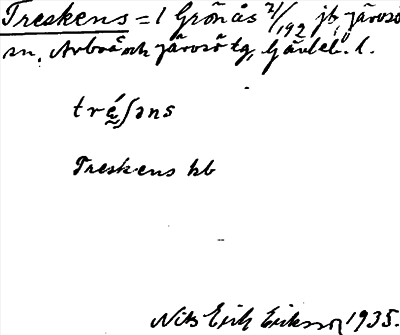 Treskens = 1 Grönås 2/192 jb, Järvsö
sn. Arbrå och Järvsö tg, Gävleb. l.
tré̬ʃəns
Treskens hb
Nils Erik Eriksson 1935.